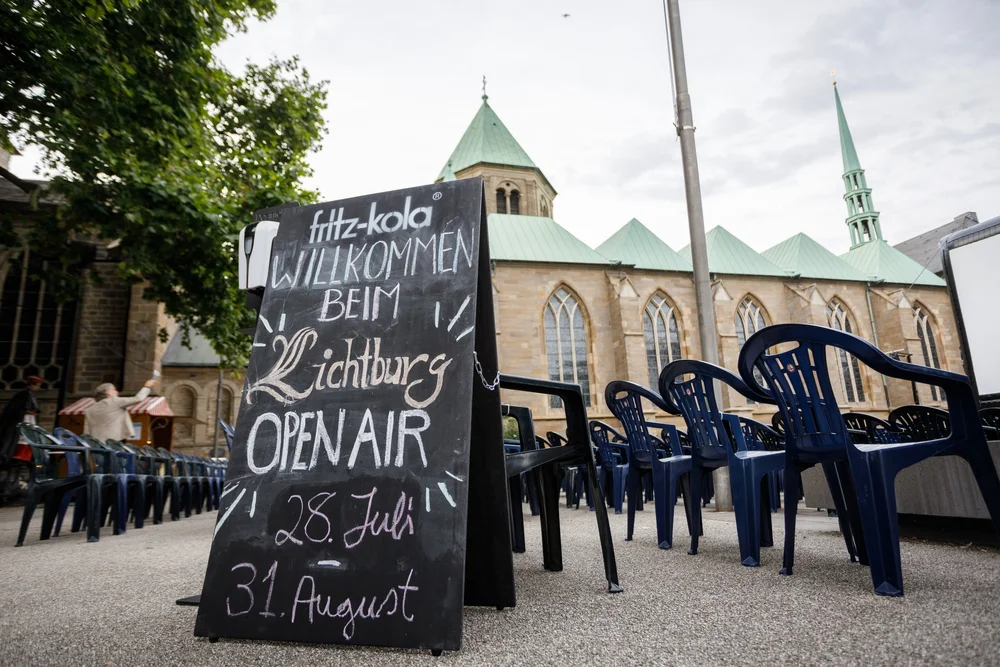 fritz-kola®
WILLKOMMEN
BEIM
Lichtburg
OPEN AIR
28. Juli
–
31. August